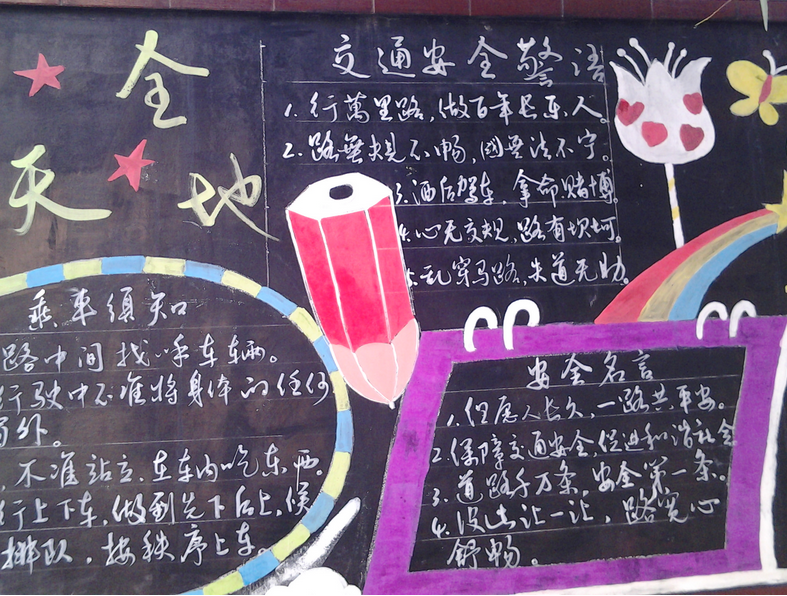 全
天地
交通安全警语
1. 行萬里路,做百年长乐人。
2. 路無规不畅,國無法不宁。
3. 酒后驾车,拿命赌博。
4. 心无交规,路有坎坷。
5. 乱穿马路,失道无助。
乘车须知
路中间找呼车辆。
行驶中不准将身体的任何
外。
,不准站立,在车内吃东西。
行上下车,做到先下后上,候
排队,按秩序上车。
安全名言
1. 但愿人长久,一路共平安。
2. 保障交通安全,促进和谐社会
3. 道路千万条,安全第一条。
4. 让一让,路宽心
舒畅。